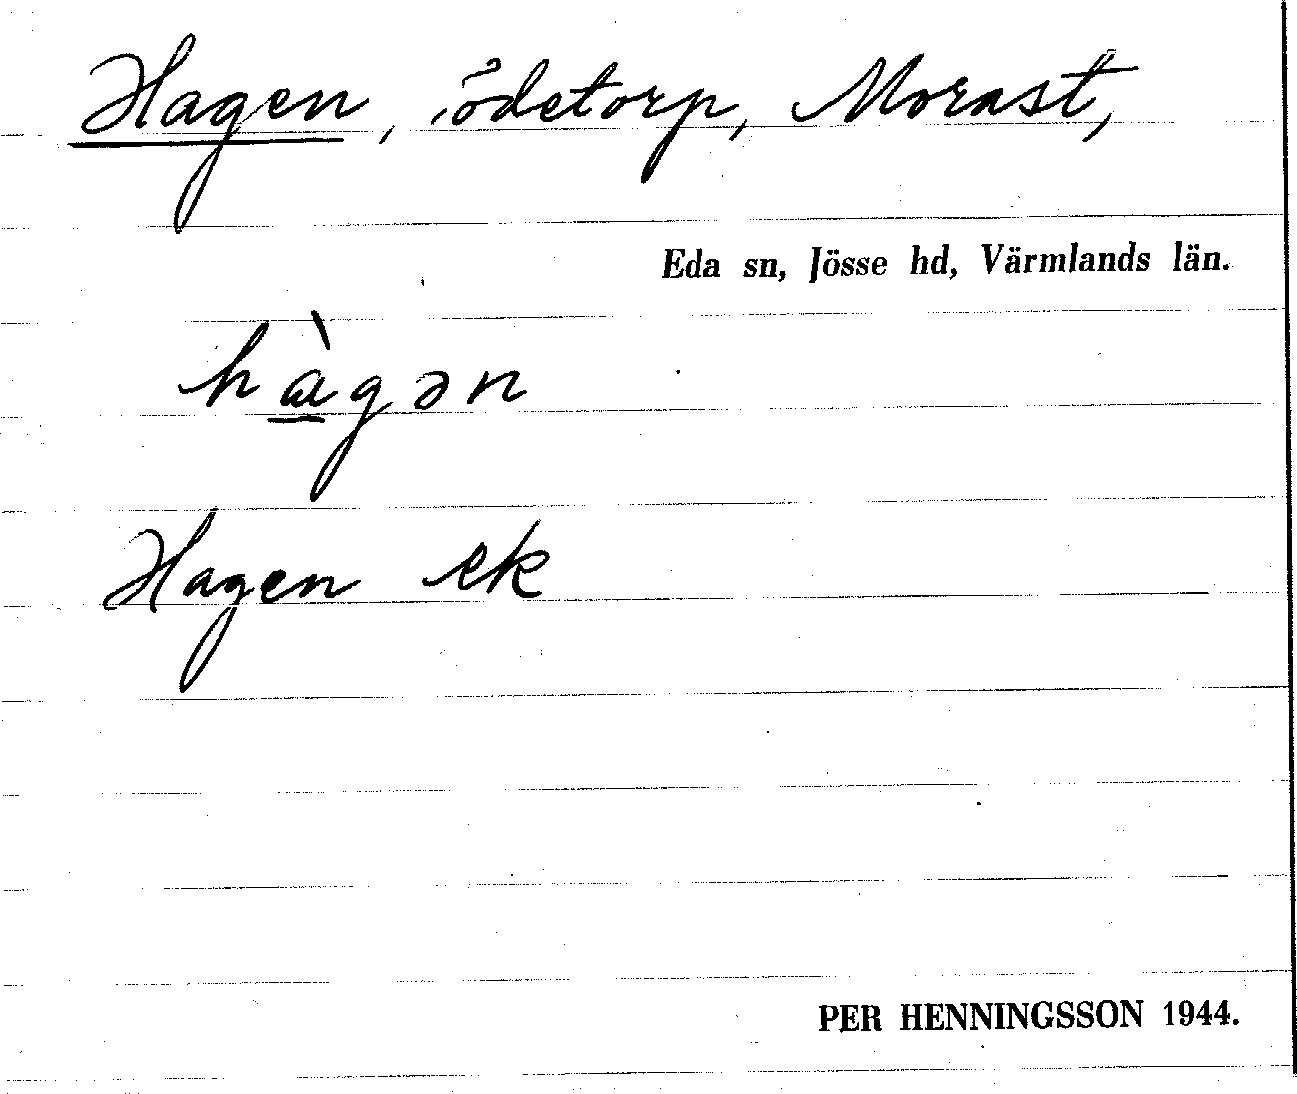 Hagen, ödetorp, Morast,
Eda sn, Jösse hd, Värmlands län.
hàgən
Hagen ek
PER HENNINGSSON 1944.